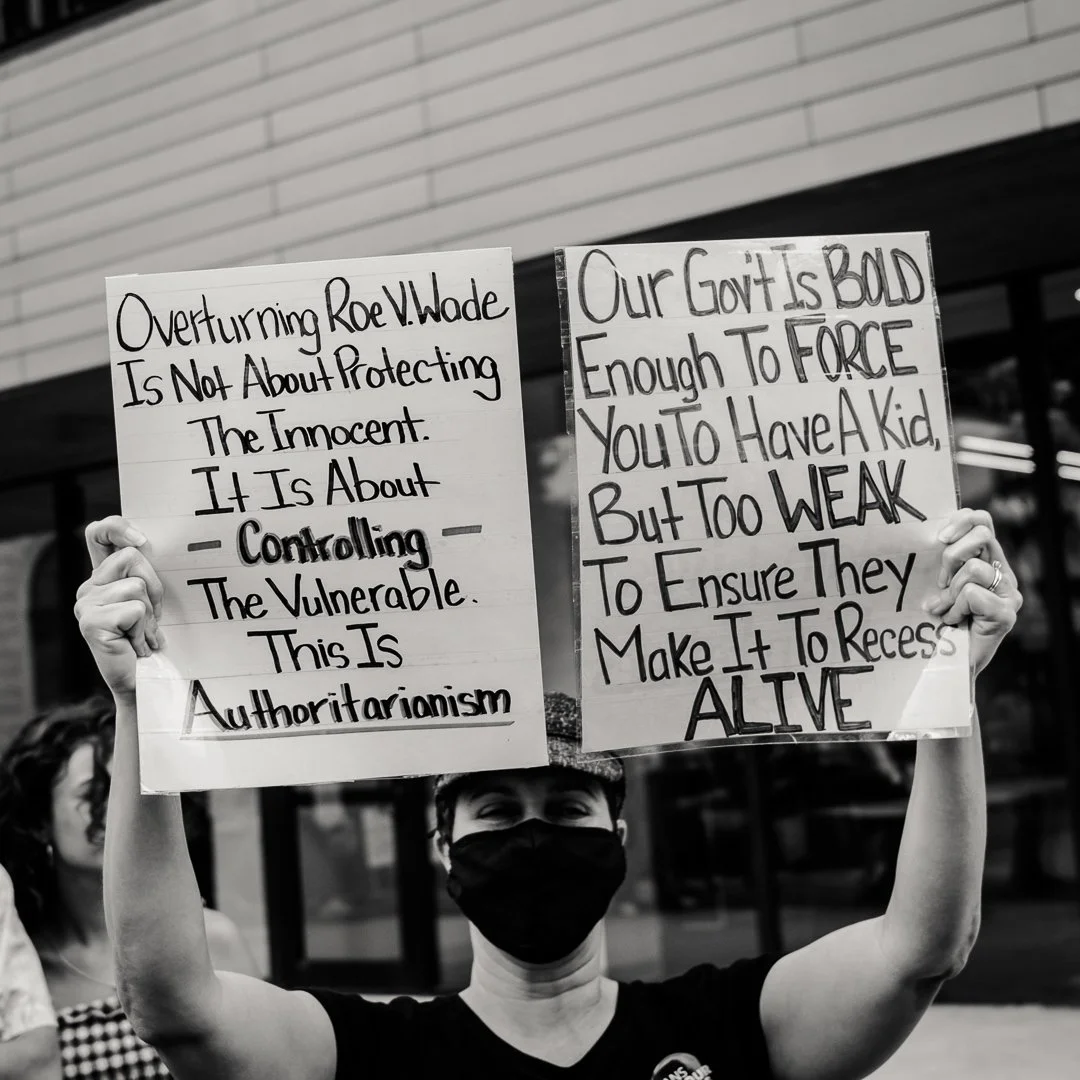 Overturning Roe V. Wade
Is Not About Protecting
The Innocent.
It Is About
- Controlling -
The Vulnerable.
This Is
Authoritarianism
Our Gov't Is BOLD
Enough To FORCE
You To Have A Kid,
But Too WEAK
To Ensure They
Make It To Recess
ALIVE